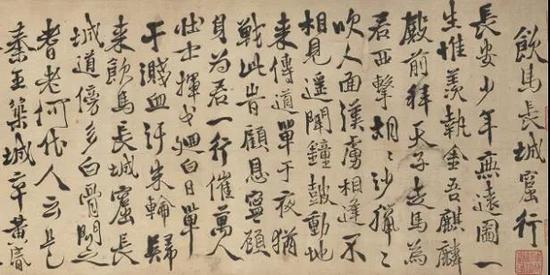 飲馬長城窟行
長安少年無遠圖一
生惟羨執金吾麒麟
殿前拜天子走馬為
君西擊胡〻沙獵〻
吹人面漢虜相逢不
相見遙聞鐘鼓動地
来傳道單于夜猶
戰此旹顧恩寧顧
身為君一行催萬人
壮士揮戈迴白日單
于濺血汙朱輪歸
来飲馬長城窟長
城道傍多白骨問之
耆老何代人云是
秦王築城卒黃昏